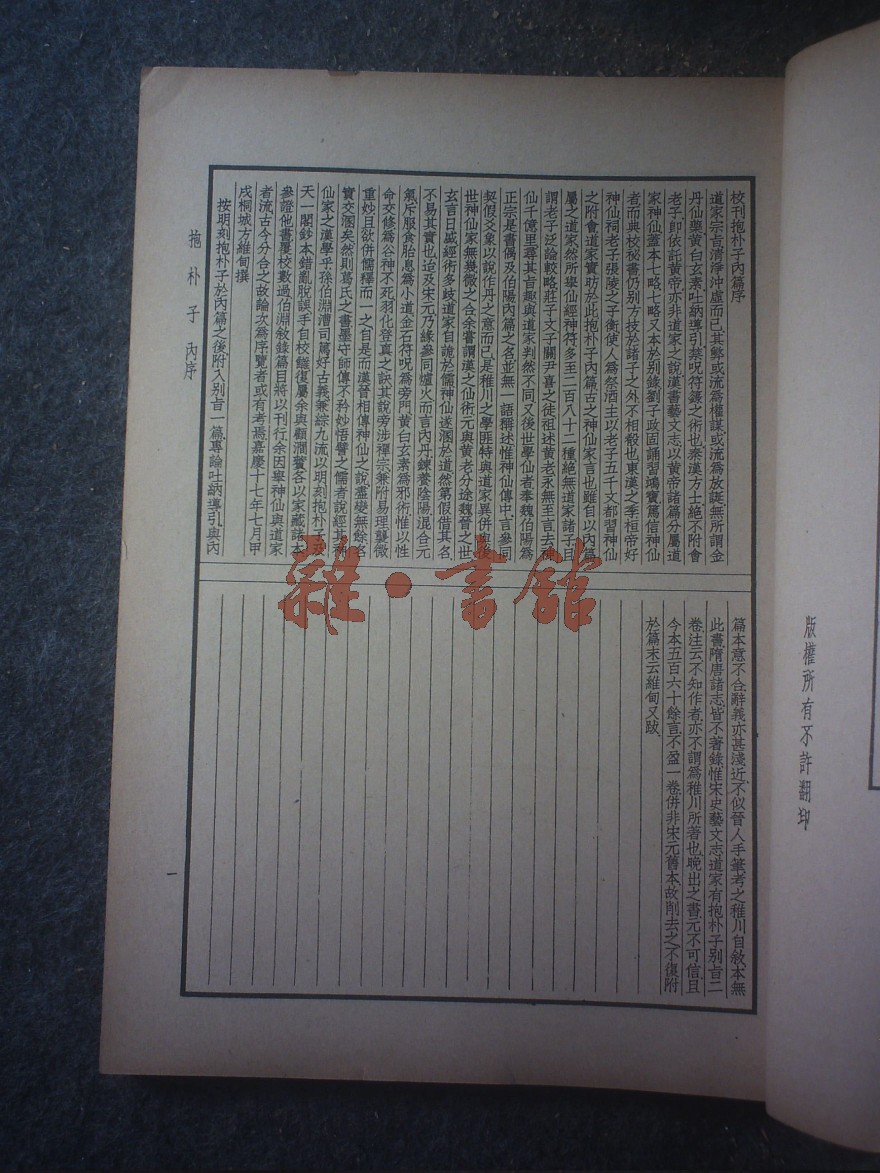 校刊抱朴子內篇序
道家宗旨清淨沖虛而已其弊或流為權謀或流為放誕無所謂金
丹仙藥黃白玄素吐納導引禁呪符籙之術也秦漢方士絕不附會
老子即依託黃帝亦非道家之說漢書藝文志以黃帝諸篇分屬道
家神仙蓋本七略七略又本於別錄劉子政固誦習鴻寶篤信神仙
者而典校秘書仍別方技於諸子之外不相殽也東漢之季桓帝好
神仙祠老子張陵之子衡使人為祭酒主以老子五千文都習神仙
之附會道家實昉於此抱朴子內篇古之神仙家言也雖自以內篇
屬之道家然所舉仙經神符多至二百八十二種絕無道家諸子且
謂老子泛論較略莊子文子關尹喜之徒祖述黃老永無至言去神
仙千億里尋其旨趣與道家判然不同又後世學仙者奉魏伯陽為
正宗是書偶及伯陽內篇之名並無一語稱述惟神仙傳中言參同
契假爻象以說作丹之意而已是稚川之學匪特與道家異併與後
世神仙家無幾微之合余嘗謂漢之仙術元與黃老分途魏晉之世
玄言日盛經術多歧道家自詭於儒神仙遂溷於道然第假借其名
不易其實也迨及宋元乃緣參同爐火而言內丹鍊養陰陽混合元
氣斥服食胎息為小道金石符呪為旁門黃白玄素為邪術惟以性
命交修為谷神不死羽化登真之訣其說旁涉禪宗兼附易理襲微
重妙且欲併儒釋而一之自是而漢晉相傳神仙之說盡變無餘名
實交溷矣然則葛氏之書墨守師傳不矜妙悟譬之儒者說經其神
仙家之漢學乎孫伯淵漕司篤好古義兼綜九流以明刻抱朴子及
天一閣鈔本錯亂脫誤手自校讎復屬余與顧澗薲各以家藏諸本
參證他書覆校數過伯淵敘錄篇目將以刊行余因舉神仙與道家
者流古今分合之故論次為序覽者或有考焉嘉慶十七年七月甲
戌桐城方維甸撰
按明刻抱朴子於內篇之後附入別旨一篇專論吐納導引與內
篇本意不合辭義亦甚淺近不似晉人手筆考之稚川自敘本無
此書隋唐諸志皆不著錄惟宋史藝文志道家有抱朴子別旨二
卷注云不知作者亦不謂為稚川所著也晚出之書元不可信且
今本五百六十餘言不盈一卷併非宋元舊本故削去之不復附
於篇末云維甸又跋
抱朴子 內序
一
版權所有不許翻印
雜·書館